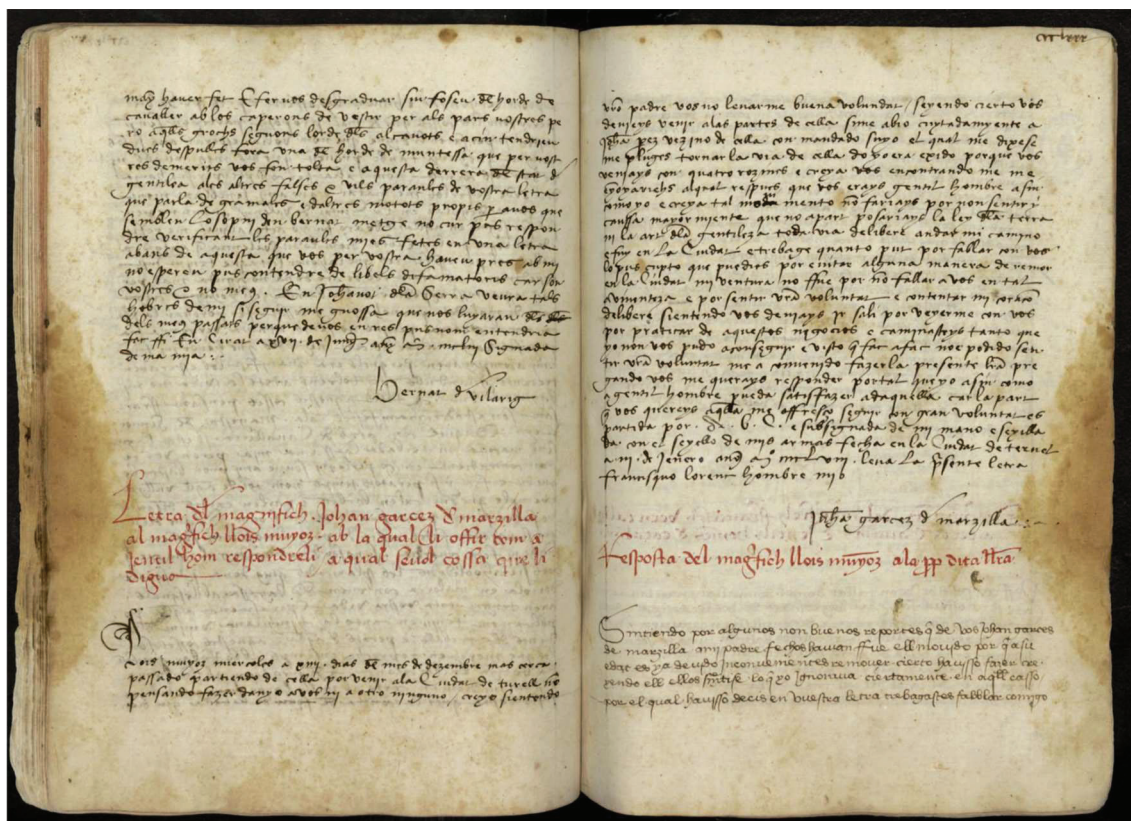 may haver fet & fer vos desgraduar si u foseu de horde de
cavaller ab los caperons de vestir per als pars vostres pe
ro aquells grochs seguons lorde dels alcavots e axi tendrieu
dues despulles fora una de horde de muntessa que per vost
res demerits vos fon tolta e aquesta derrera de stat de
gentilea a les altres falses & vils paraules de vostra letra
que parla de gramalles e daltres motots propis per a vos que
semblen den bernat metge no cur pas respon
dre verificant les paraules mies fetes en una letra
abans de aquesta que vos per vostra haveu pres ab mi
no espereu pus contendre de libels difamatoris car son
vostres & no meus. En Johanot dela Serra veura tals
hobres de mi si seguir me gnossa que nos luyaran
dels meus passats perque de vos en res pus non entendria
fac fi En Cirat a xvii. de Juny any Mclii Signada
de ma mia
Bernat d Vilarig
Letra del magnifich. Johan garcez de marzilla
al magnifich llois munyoz. ab la qual li offir com a
jentil hom respondreli a qual sevol cossa que li
digua
Lois munyoz miercoles a xiii. dias del mes de dezembre mas cerca
passado partiendo de cella por venir ala Ciudat de turell no
pensando fazer danyo a vos ni a otro ninguno, creyo sientendo
vuestro padre vos no levarme buena volundat, seyendo cierto vos
deviers venir alas partes de cella si me abio cuytadamente a
pez vezino de cella con mandado suyo el qual me dixese
me pluges tornar la via de cella do yo era exido porque vos
veniays con quatro rozines e creya vos encontrando me me
al qual respus que vos erays gentil hombre asin
como yo e creya tal mudamento no fariays por non sentir y
caussa mayormiente que no apart posariays la ley dela tierra
ni la art dela gentileza toda via delibere andar mi camino
e fuy en la Ciudat e trebage quanto put por fablar con vos
lo pus cupto que puedies por evitar alguna manera de remor
en la Ciudat mi ventura no ffue por no fallar a vos en tal
avinenteza e por sentir vuestra voluntat e contentar mi coraçon
delibere sientendo vos deviays ir sali por veyerme con vos
por praticar de aquestos negocios e caminasteys tanto que
yo non vos pudo aconseguir e visto que fac a fac no e podido sen
tir vuestra voluntat me a convenido fazer la presente letra pre
gando vos me querays responder portal que yo asin como
a gentil hombre pueda satisfazer ad aquella car la part
que vos querreys aquella me offresco seguir con gran voluntat es
partida por. A. b. c. e subsignada de mi mano e seyella
da con el seyello de mis armas fecha en la Ciudat de teruel
a iii. de Jenero anyo Mcl viii. leva la presente letra
Francisquo lorent hombre mio
Johan garcez d marzilla
Resposta del magnifich llois munyoz ala prop dita lletra
Sintiendo por algunos non buenos reportes que de vos Johan garces
de marzilla a mi padre fechos havian ffue ell movido por que a su
edat es ya devido inconvenientes remover cierto havisso fazer cre
yendo ell ellos sintise lo que yo ignorava ciertamente. en aquell casso
por el qual havisso decis en vuestra letra trebagastes fablar comigo